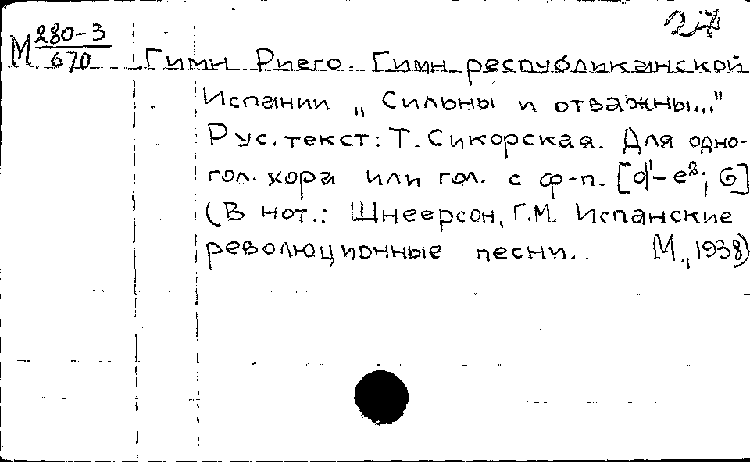 27
М 280-3
670
Гимн Риего. Гимн республиканской
Испании „Сильны и отважны..."
Рус. текст: Т. Сикорская. Для одно-
гол. хора или гол. с ф-п. [d¹-e²; G]
(В нот.: Шнеерсон, Г.М. Испанские
революционные песни. М., 1938)